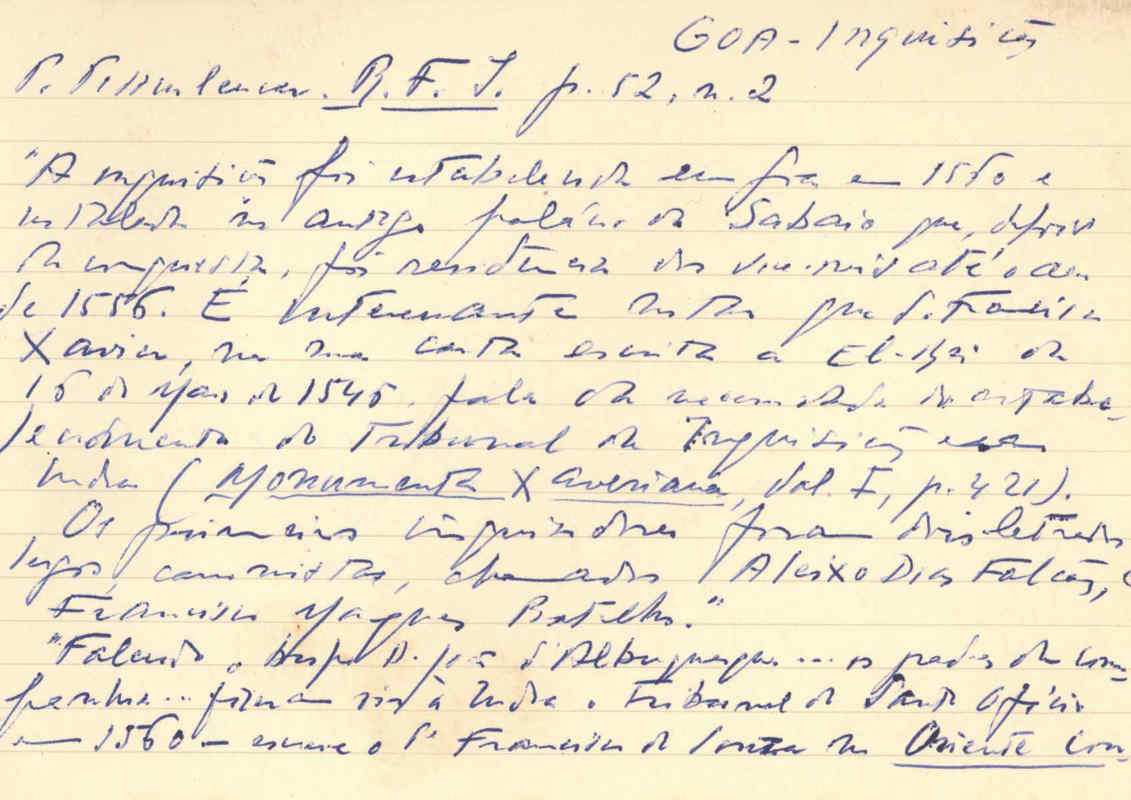 GOA - Inquisição
P. Pissurlencar. R. F. I. p. 52, n. 2
"A inquisição foi estabelecida em Goa em 1560 e
instalada no antigo palácio do Sabaio que, depois
da conquista, foi residência dos vice-reis até o ano
de 1556. É interessante notar que S. Francisco
Xavier, na sua carta escrita a El-Rei de
16 de Maio de 1546. fala da necessidade do estabe-
lecimento do Tribunal da Inquisição em
India (Monumenta Xaveriana, Vol. I, p. 421).
Os primeiros inquisidores foram dois letrados
leigos, canonistas, chamados Aleixo Dias Falcão, e
Francisco Marques Botelho."
"Falecido o bispo D. João d'Albuquerque... os padres da Com-
panhia... fizeram vir à India o Tribunal do Santo Ofício
em 1560 - escreve o P. Francisco de Souza no Oriente Con-